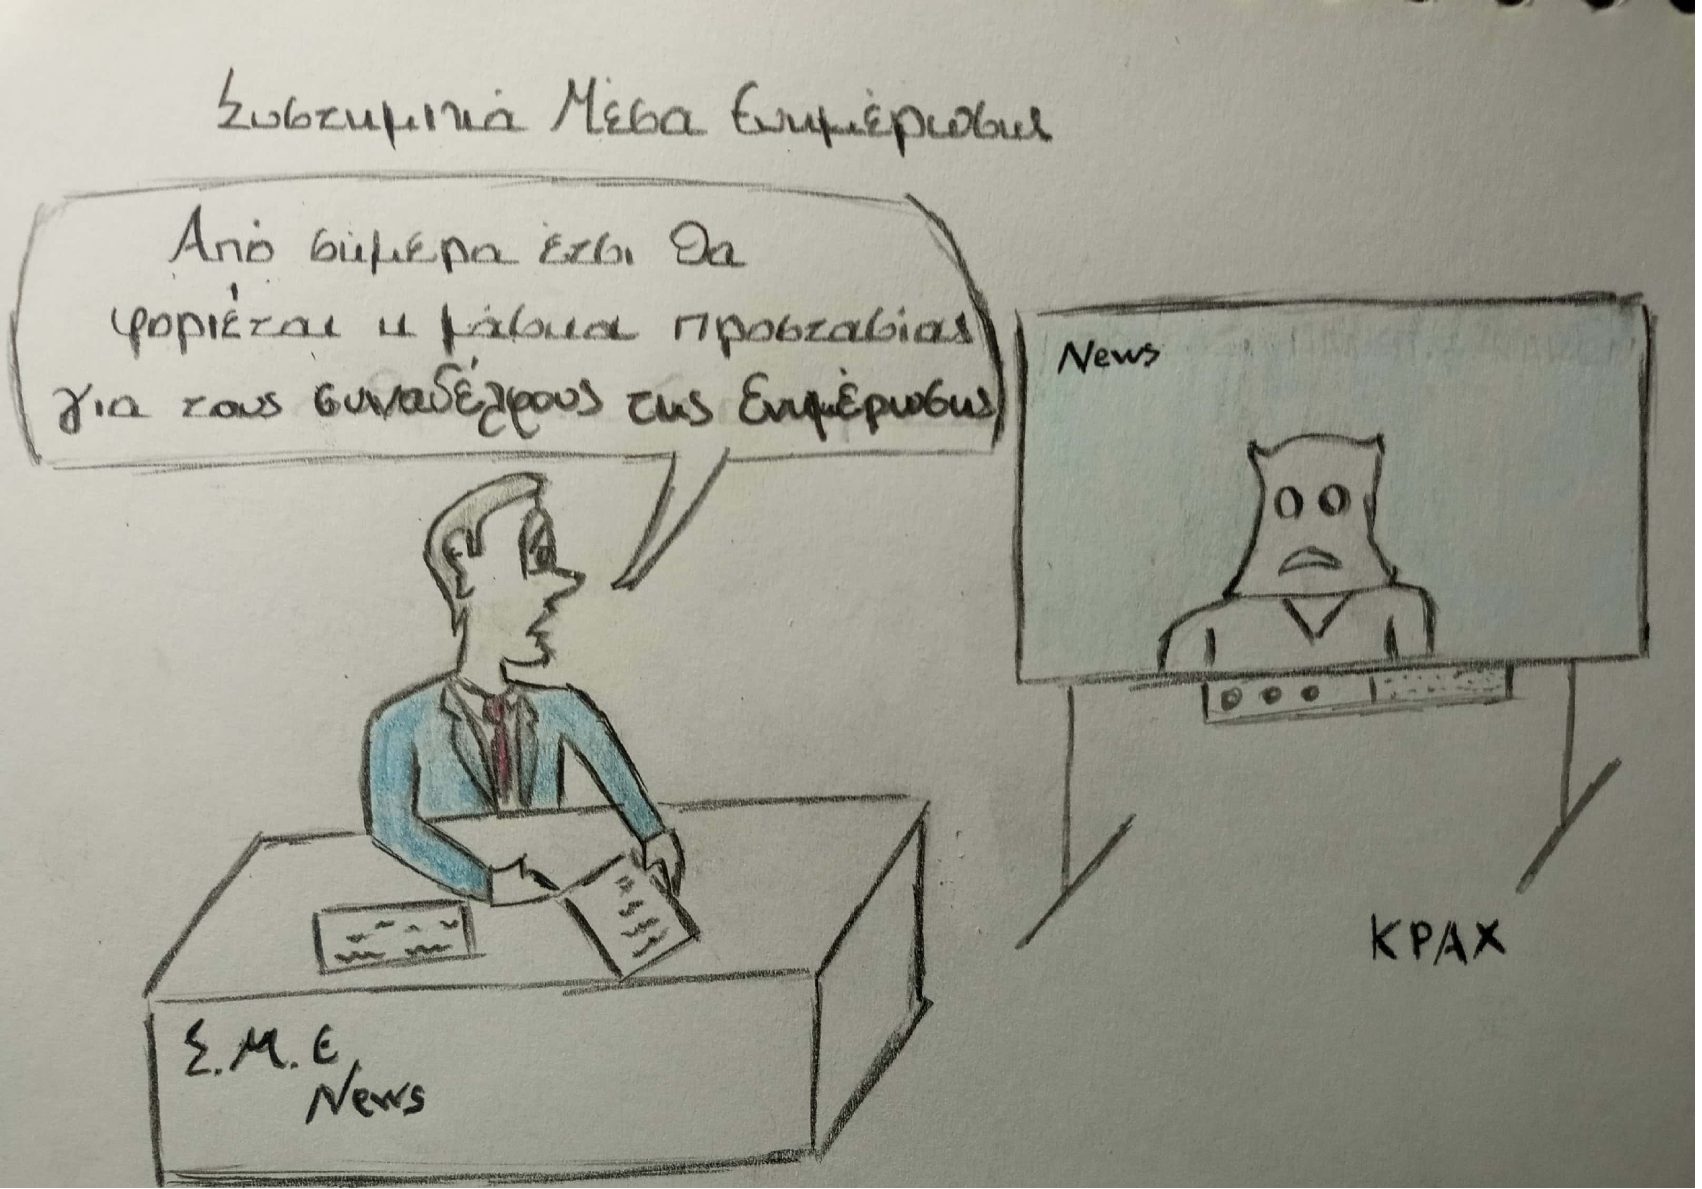 Συστημικά Μέσα Ενημέρωσης
Από σήμερα έτσι θα
φοριέται η μάσκα προστασίας
για τους συναδέλφους της Ενημέρωσης
News
Σ.Μ.Ε.
News
ΚΡΑΧ